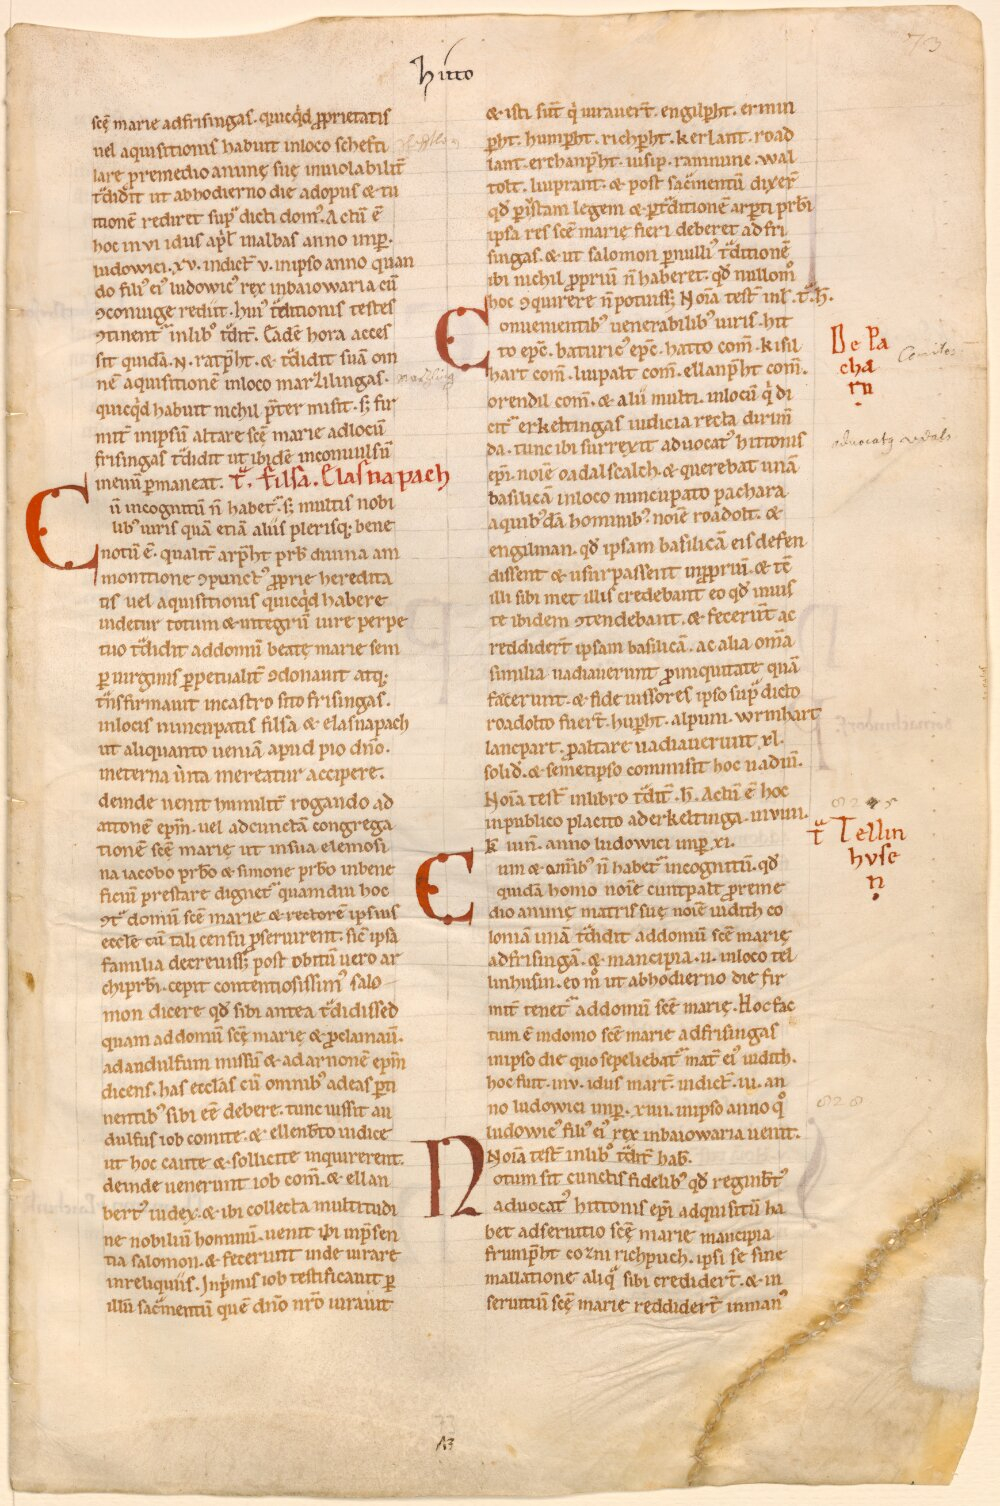 73
hitto
scē marie ad frisingas. quicqͥd ꝓprietatis
uel aquisitionis habuit in loco schefti
lare ꝑ remedio animę suę inuiolabilit̄
t̄didit ut ab hodierno die ad opus & tu
itionē rediret sup̄ dicti domꝰ. Actū ē
hoc in vi idus ap̄l in albas anno imꝑ.
ludowici. xv. indict̄ v. in ipso anno quan
do filiꝰ eiꝰ ludowicꝰ rex in baiowaria cū
ꝯiuge rediit. huiꝰ t̄ditionis testes
ꝯtinent̄ in libꝰ t̄dit̄. Eadē hora acces
sit quidā. N. ratꝑht. & t̄didit suā om
nē aquisitionē in loco marzilingas.
quicqͥd habuit nichil p̄ter misit. s; fir
mit̄ in ipsū altare scē marie ad locū
frisingas t̄didit ut ibidē inconuulsū
in euū ꝑmaneat. T̄. filsa. Elasnapach
Ū incognitū n̄ habet̄. s; multis nobi
libꝰ uiris quā etiā aliis plerisq; bene
notū ē. qualit̄ arꝑht prb̄ diuina am
monitione ꝯpunctꝰ ꝓprie heredita
tis uel aquisitionis quicqͥd habere
uidetur totum & integrū iure perpe
tuo t̄didit ad domū beatę marie sem
ꝑ uirginis ꝑpetualit̄ ꝯdonauit atq;
t̄nsfirmauit in castro sito frisingas.
in locis nuncupatis filsa. & elasnapach
ut aliquanto ueniā apud pio dn̄o.
in eterna uita mereatur accipere.
deinde uenit humilit̄ rogando ad
attonē ep̄m. uel ad cunctā congrega
tionē scē marię ut in sua elemosi
na iacobo prb̄o & simone prb̄o in bene
ficiū prestare dignet̄ quam diu hoc
ꝯt̄ domū scē marie & rectorē ipsius
eccłe cū tali censu ꝓseruirent. sic̄ ipsa
familia decreuiss; post obitū uero ar
chiprb̄i. cepit contentiosissimꝰ salo
mon dicere qd̄ sibi antea t̄didissed
quam ad domū scē marię & ꝓclamaū.
ad andulfum missū & ad arnonē ep̄m
dicens. has eccłas cū omnibꝰ ad eas ꝑti
nentibꝰ sibi eē debere. tunc iussit au
dulfus iob comite. & ellenb̄to iudice
ut hoc caute & sollicite inquirerent.
deinde uenerunt iob com̄. & ellan
bertꝰ iudex. & ibi collecta multitudi
ne nobiliū hominū. uenit ibi in p̄sen
tia salomon. & fecerunt inde iurare
in reliquiis. Inp̄mis iob testificauit ꝑ
illū sac̄mentū quē dn̄o nr̄o iurauit
& isti sūt qͥ iurauer̄t. engilꝑht. ermin
ꝑht. humꝑht. richꝑht. kerlant. road
lant. erchanꝑht. uisip. rammune. wal
tolt. liuprant. & post sac̄mentū dixer̄
qd̄ ꝑ istam legem & ꝑ t̄ditionē arꝑti prb̄i
ipsa res scē marię fieri deberet ad fri
singas. & ut salomon ꝑ nulliꝰ t̄ditionē
ibi nichil ꝓpriū n̄ haberet. qd̄ nullomͦ
hoc ꝯquirere n̄ potuiss; Noīa test̄ in l̄. t̄. h̄.
Conuenientibꝰ uenerabilibꝰ uiris. hit
to ep̄c. baturicꝰ ep̄c. hatto com̄. kisil
hart com̄. liupalt com̄. ellanꝑht com̄.
orendil com̄. & alii multi. in locū qͥ di
cit̄ erkeltingas iudicia recta dirim̄
da. tunc ibi surrexit aduocatꝰ hittonis
ep̄i. noīe oadalscalch. & querebat unā
basilicā in loco nuncupato pachara
a quibꝰdā hominibꝰ. noīe roadolt. &
engilman. qd̄ ipsam basilicā eis defen
dissent & usurpassent in ꝓpriū. & tē
illi sibi met illis credebant eo qd̄ inuis
te ibidem ꝯtendebant. & fecerūt ac
reddider̄t ipsam basilicā. ac alia om̄a
similia uadiauerunt ꝓ iniquitate quā
facerunt. & fide iussores ipso sup̄ dicto
roadolto fuer̄t. huꝑht. alpuni. wrmhart
lancpart. ꝓ altare uadiauerunt xl.
solid̄. & semetipso commisit hoc uadiū.
Noīa test̄ in libro t̄dit̄. h̄. Actū ē hoc
in publico placito ad erkeltinga. in viiii.
k̄ iun̄. anno ludowici imꝑ xi.
Cum & om̄ibꝰ n̄ habet̄ incognitū. qd̄
quidā homo noīe cuntpalt ꝓ reme
dio animę matris suę noīe iudith co
loniam unā t̄didit ad domū scē marię
ad frisingā. & mancipia. ii. in loco tel
linhusin. eo mͦ ut ab hodierno die fir
mit̄ tenet̄ ad domū scē marię. Hoc fac
tum ē in domo scē marie ad frisingas
in ipso die quo sepeliebat̄ mat̄ eiꝰ iudith.
hoc fuit. in v. idus mart̄. indict̄. iii. an
no ludowici imꝑ. xiiii. in ipso anno qͦ
ludowicꝰ filiꝰ eiꝰ rex in baiowaria uenit.
Noīa test̄ in libꝰ t̄dit̄ hab̄.
Notum sit cunctis fidelibꝰ qd̄ reginb̄t
aduocatꝰ hittonis ep̄i adquisitū ha
bet ad seruitio scē marie mancipia
frumꝑht cozni richpuch. ipsi se sine
mallatione aliqͣ sibi credider̄t. & in
seruitiū scē marie reddider̄t in manꝰ
De Pa
cha
rū
Comites
aduocatꝰ vdals
T̄ Tellin
huse
n
828
A3